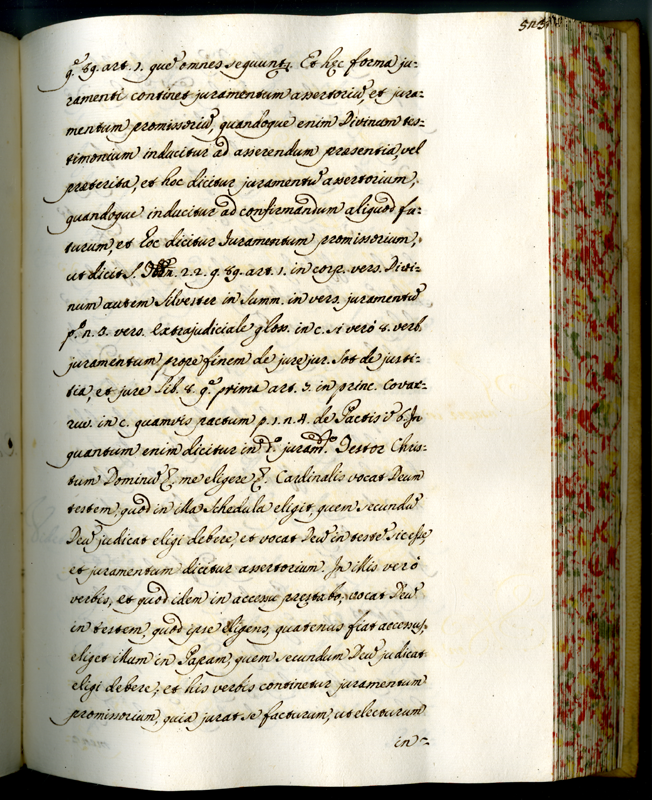 q. 89. art. 1. que omnes sequunt. Et hęc forma ju-
ramenti continet juramentum assertoriũ, et jura-
mentum promissoriũ, quandoque enim Divinum tes-
timonium inducitur ad asserendum præsentia, vel
præterita, et hoc dicitur juramentũ assertorium,
quandoque inducitur ad confirmandum aliquod fu-
turum, et hoc dicitur Juramentum promissorium,
ut dicit S. n. 2. 2. q. 89. art. 1. in corp. vers. Divi-
num autem Silvester in Summ. in vers. juramentũ
pº n. 3. vers. extrajudiciale gloss. in c. si verò 8. verb.
juramentum, prope finem de jurejur. Sot de justi-
tia, et jure lib. 8. qº prima art. 3. in princ. Covar-
ru. in c. quamvis pactum p. 1. n. 4. de Pactis in 6. In
quantum enim dicitur in dº juramº. Testor Chris-
tum Dominũ &, me eligere &. Cardinalis vocat Deum
testem, quod in illa schedula eligit, quem secundũ
Deũ judicat eligi debere, et vocat Deũ in testẽ sic esse
et juramentum dicitur assertorium. In illis verò
verbis, et quod idem in accessu prestabo, vocat Deũ
in testem, quod ipse eligens, quatenus fiat accessus,
eliget illum in Papam, quem secundum Deũ judicat
eligi debere, et his verbis continetur juramentum
promissorium, quia jurat se facturum, ut electurum
in